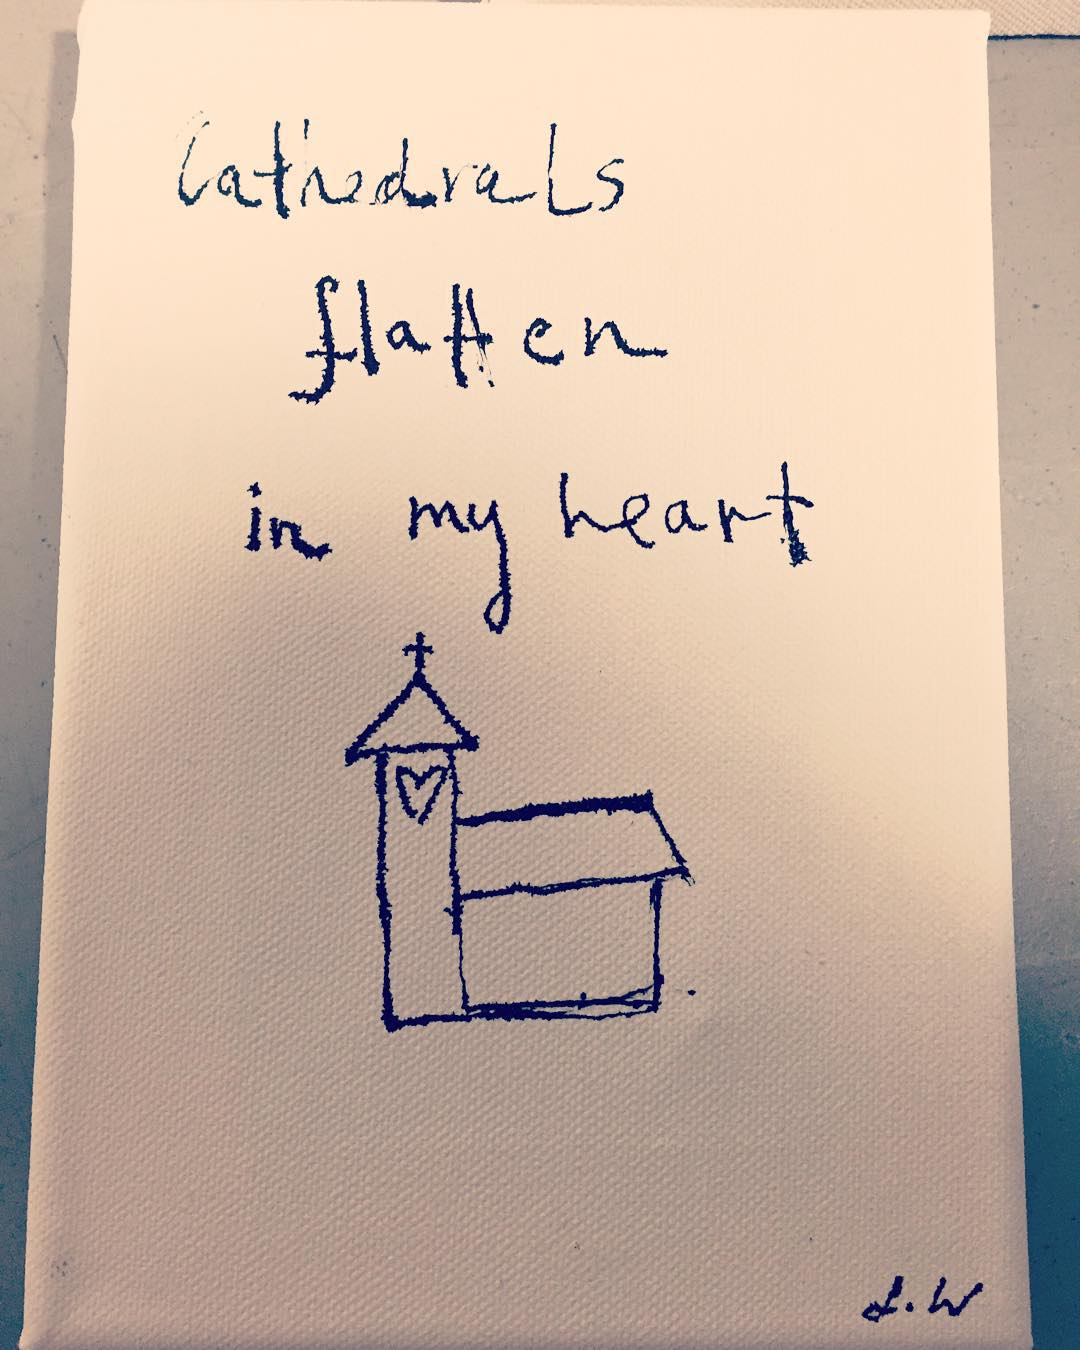 Cathedrals
flatten
in my heart
L.W